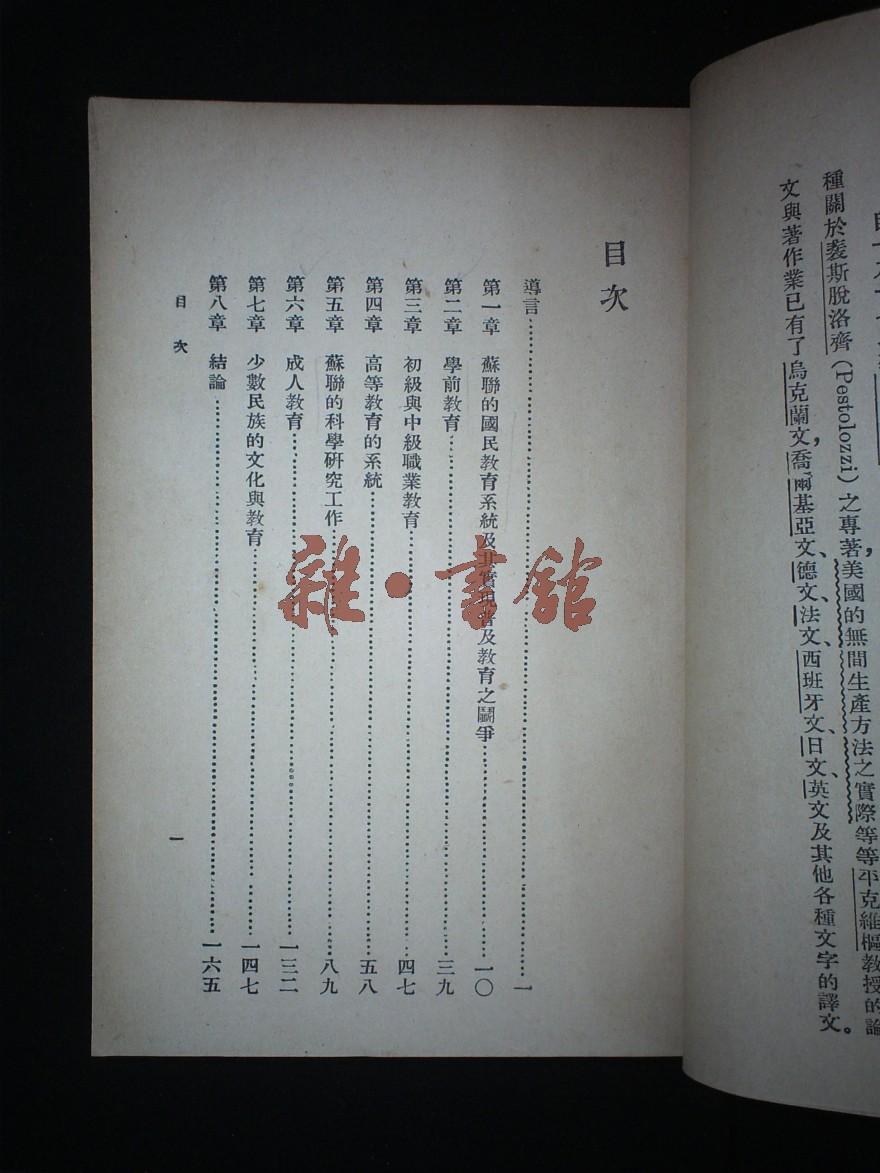 種關於裴斯脫洛齊(Pestolozzi)之專著,美國的無間生產方法之實際等等平克維樞教授的論
文與著作業已有了烏克蘭文,喬爾基亞文、德文、法文、西班牙文、日文、英文及其他各種文字的譯文。
目次
導言……一
第一章 蘇聯的國民教育系統及其實現普及教育之鬭爭……一〇
第二章 學前教育……三九
第三章 初級與中級職業教育……四七
第四章 高等教育的系統……五八
第五章 蘇聯的科學研究工作……八九
第六章 成人教育……一三二
第七章 少數民族的文化與教育……一四七
第八章 結論……一六五
目次
一
雜·書館